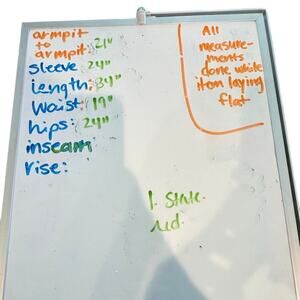 armpit
to
armpit: 21"
sleeve: 24"
Length: 34"
Waist: 19"
hips: 24"
inseam
rise:
All
measure-
ments
done while
item laying
flat
1. State